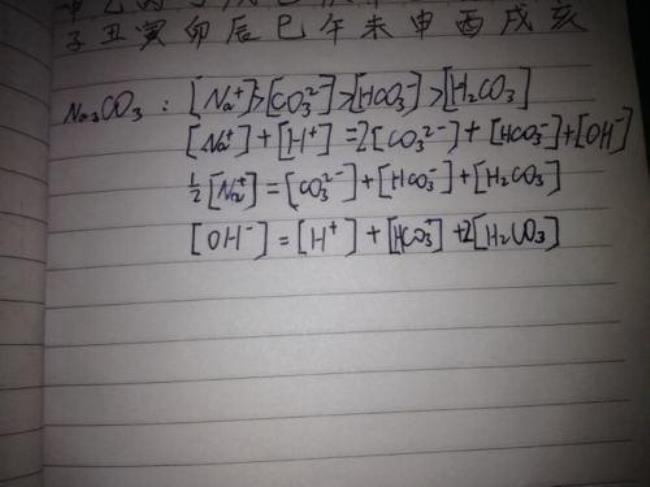 子丑寅卯辰巳午未申酉戌亥
Na₂CO₃ : [Na⁺]>[CO₃²⁻]>[HCO₃⁻]>[H₂CO₃]
[Na⁺]+[H⁺]=2[CO₃²⁻]+[HCO₃⁻]+[OH⁻]
½[Na⁺]=[CO₃²⁻]+[HCO₃⁻]+[H₂CO₃]
[OH⁻]=[H⁺]+[HCO₃⁻]+2[H₂CO₃]